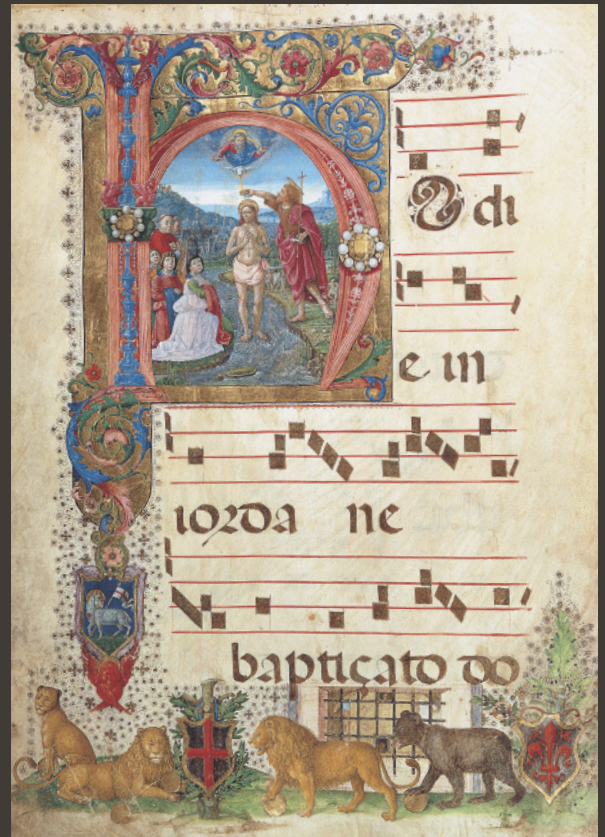 HO di
e in
iorda ne
baptiçato do